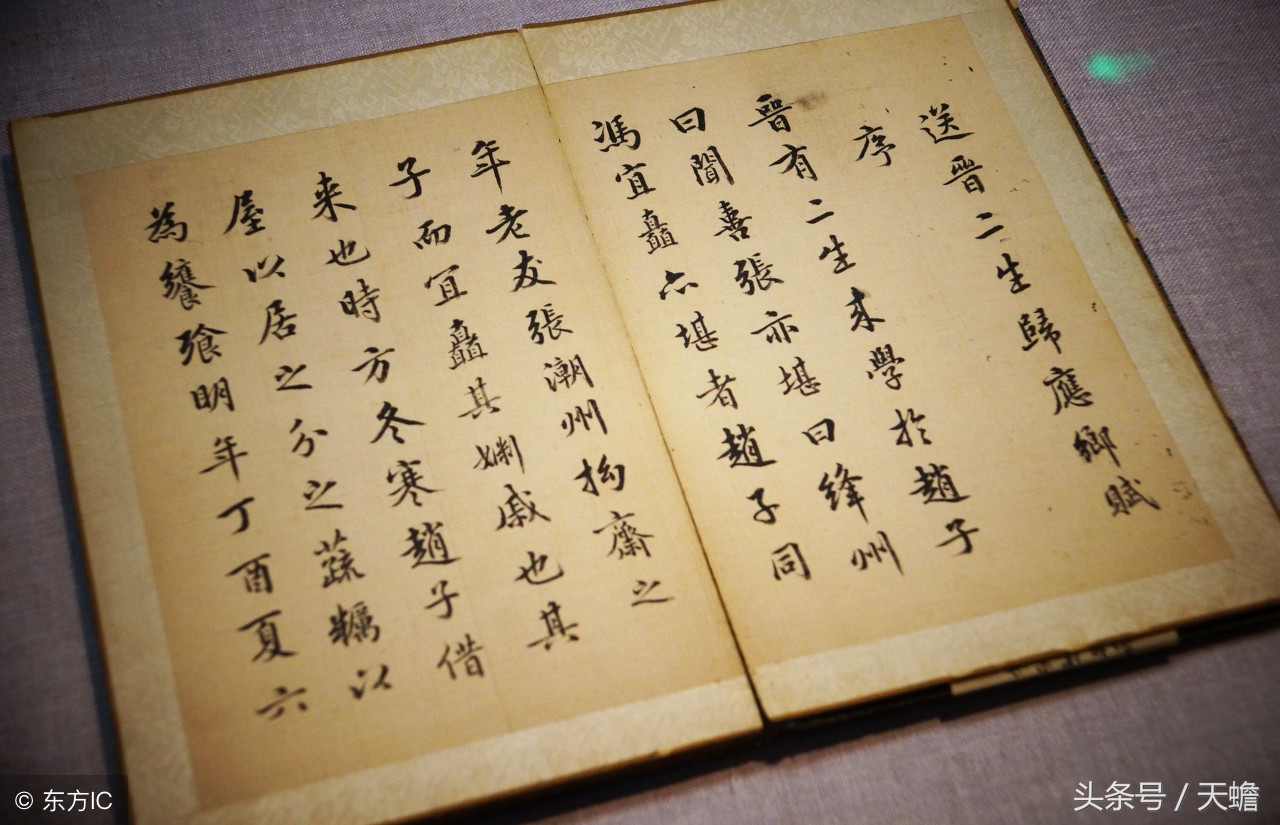 送晋二生歸應鄉賦
序
晋有二生来學於趙子
曰聞喜張亦堪曰絳州
馮宜矗亦堪者趙子同
年老友張潮州拗齋之
子而宜矗其婣戚也其
来也時方冬寒趙子借
屋以居之分之蔬糲以
為饔飱明年丁酉夏六
© 东方IC
头条号 / 天蟾